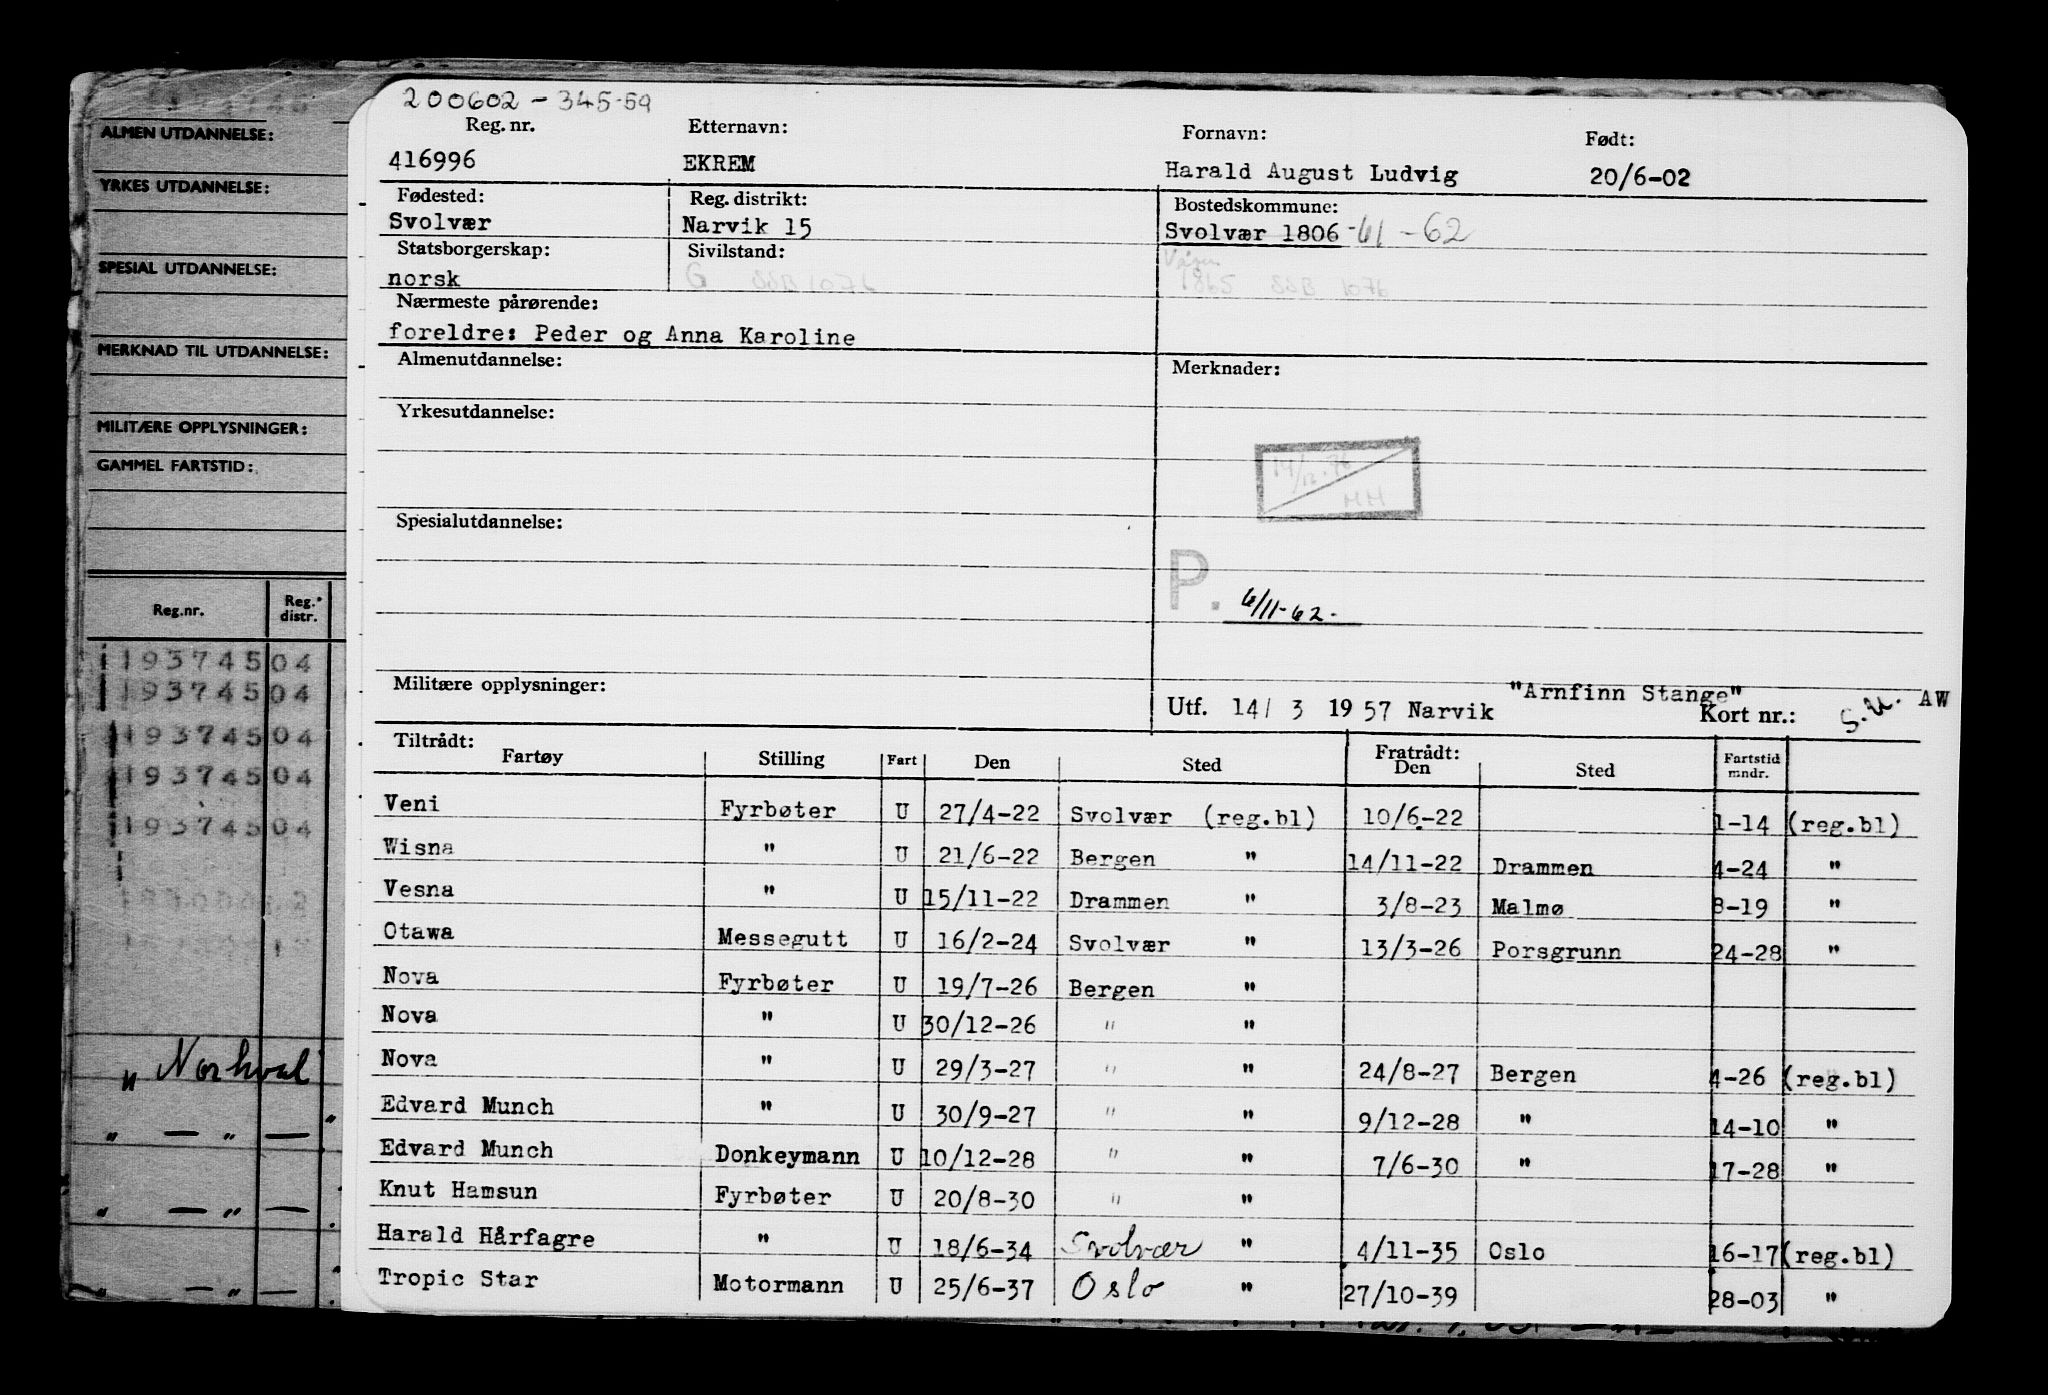 ALMEN UTDANNELSE:
YRKES UTDANNELSE:
SPESIAL UTDANNELSE:
MERKNAD TIL UTDANNELSE:
MILITÆRE OPPLYSNINGER:
GAMMEL FARTSTID:
Reg.nr. Reg. distr.
193745 04
193745 04
193745 04
193745 04
193745 04
" Norhval
" — " —
" — " —
" — " —
200602 - 345-59
Reg. nr. Etternavn: Fornavn: Født:
416996 EKREM Harald August Ludvig 20/6-02
Fødested: Reg. distrikt: Bostedskommune:
Svolvær Narvik 15 Svolvær 1806 -61 - 62
Statsborgerskap: Sivilstand: Vågan
norsk G SSB 1076 1865 SSB 1076
Nærmeste pårørende:
foreldre: Peder og Anna Karoline
Almenutdannelse: Merknader:
Yrkesutdannelse:
14/12-76
MM
Spesialutdannelse:
P. 6/11-62-
Militære opplysninger:
"Arnfinn Stange" S.U. AW
Utf. 14/ 3 1957 Narvik Kort nr.:
Tiltrådt: Fratrådt:
Fartøy Stilling Fart Den Sted Den Sted Fartstid mndr.
Veni Fyrbøter U 27/4-22 Svolvær (reg.bl) 10/6-22 1-14 (reg.bl)
Wisna " U 21/6-22 Bergen " 14/11-22 Drammen 4-24 "
Vesna " U 15/11-22 Drammen " 3/8-23 Malmø 8-19 "
Otawa Messegutt U 16/2-24 Svolvær " 13/3-26 Porsgrunn 24-28 "
Nova Fyrbøter U 19/7-26 Bergen "
Nova " U 30/12-26 " "
Nova " U 29/3-27 " " 24/8-27 Bergen 4-26 (reg.bl)
Edvard Munch " U 30/9-27 " " 9/12-28 " 14-10 "
Edvard Munch Donkeymann U 10/12-28 " " 7/6-30 " 17-28 "
Knut Hamsun Fyrbøter U 20/8-30 " "
Harald Hårfagre " U 18/6-34 Svolvær " 4/11-35 Oslo 16-17 (reg.bl)
Tropic Star Motormann U 25/6-37 Oslo " 27/10-39 28-03 "